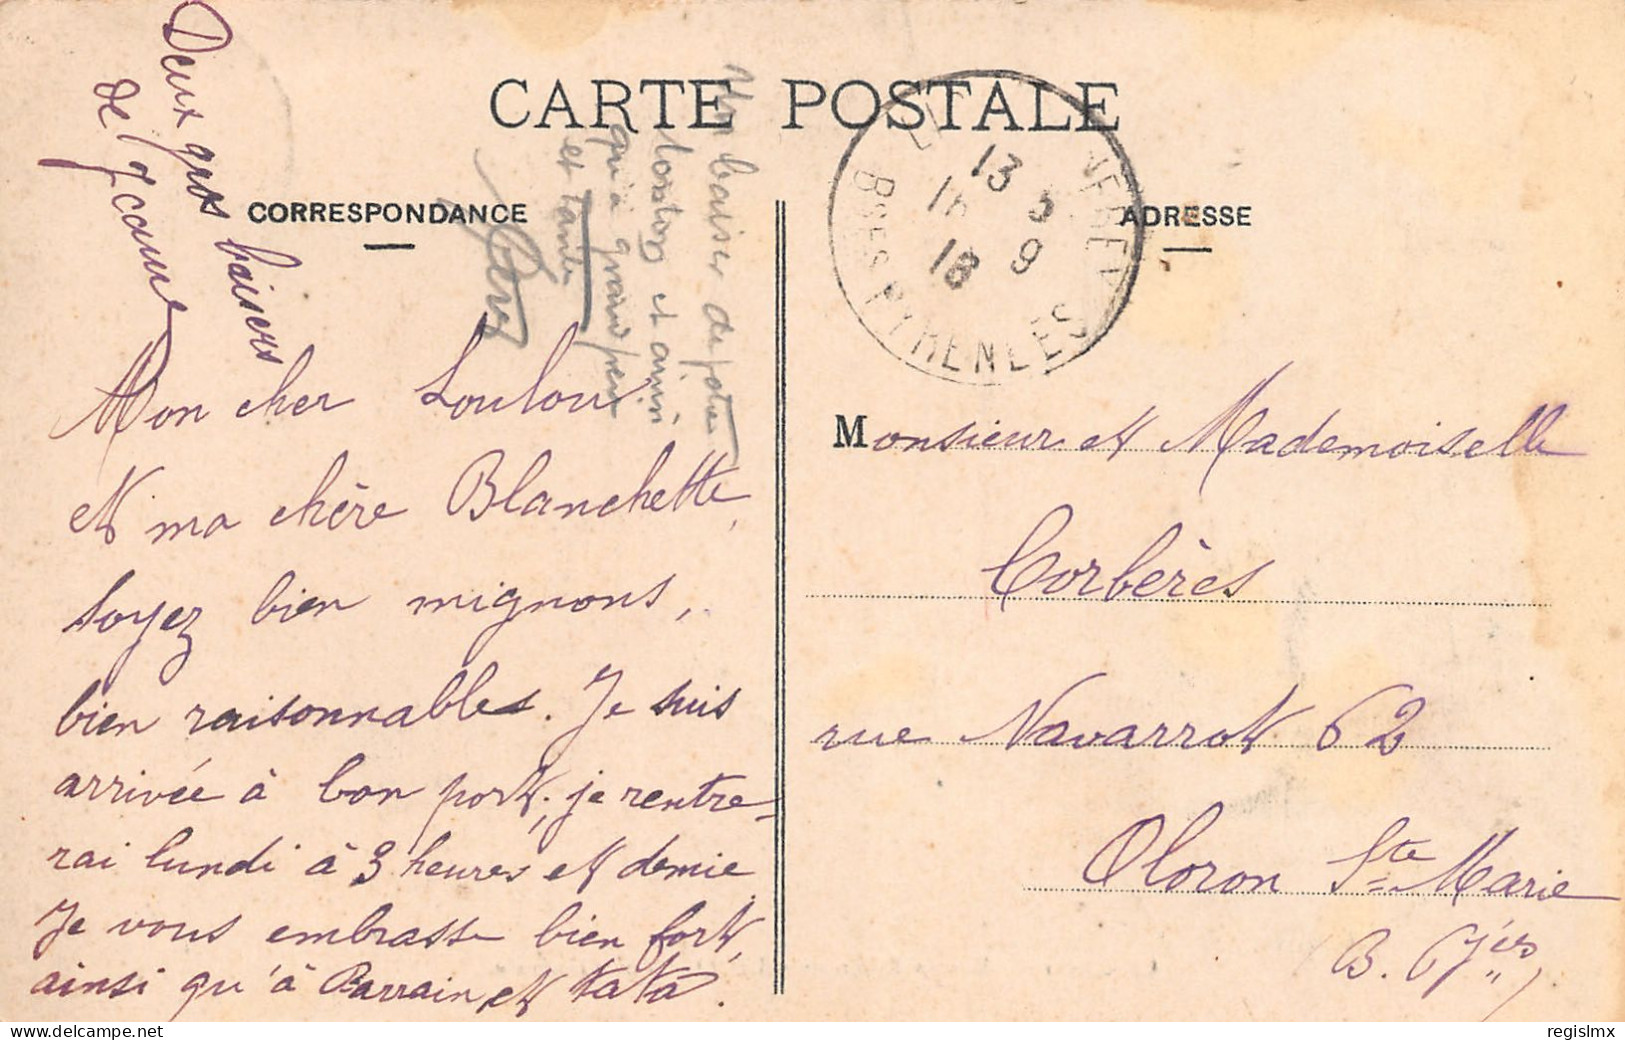 CARTE POSTALE
CORRESPONDANCE
ADRESSE
Deux gros baisers
de Jeanne
Un baiser de votre
tonton et ainsi
qu'à grand père
et tante
13 5
16 9
18
BSES PYRENEES
Mon cher Loulou
et ma chère Blanchette,
soyez bien mignons,
bien raisonnables. Je suis
arrivée à bon port, je rentre-
rai lundi à 3 heures et demie
Je vous embrasse bien fort,
ainsi qu'à Parrain et tata.
Monsieur et Mademoiselle
Corbères
rue Navarrot 62
Oloron Ste Marie
B. Pyées
regislmx
delcampe.net